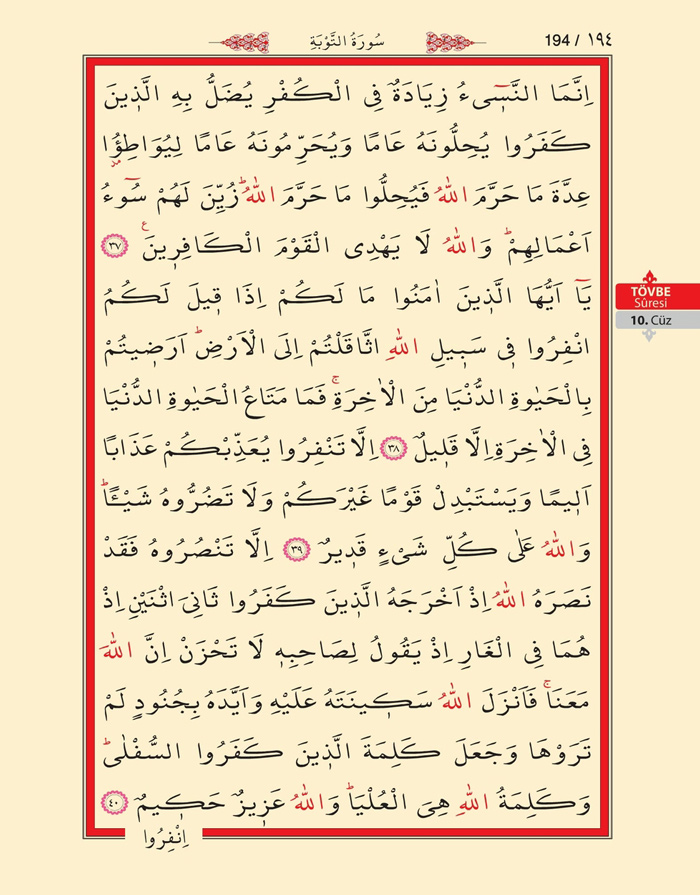 194 / ١٩٤
سُورَةُ التَّوْبَةِ
اِنَّمَا النَّسٖٓيءُ زِيَادَةٌ فِي الْكُفْرِ يُضَلُّ بِهِ الَّذٖينَ
كَفَرُوا يُحِلُّونَهُ عَامًا وَيُحَرِّمُونَهُ عَامًا لِيُوَاطِؤُ۫ا
عِدَّةَ مَا حَرَّمَ اللّٰهُ فَيُحِلُّوا مَا حَرَّمَ اللّٰهُؕ زُيِّنَ لَهُمْ سُٓوءُ
اَعْمَالِهِمْؕ وَاللّٰهُ لَا يَهْدِى الْقَوْمَ الْكَافِرٖينَࣖ ﴿٣٧﴾
يَٓا اَيُّهَا الَّذٖينَ اٰمَنُوا مَا لَكُمْ اِذَا قٖيلَ لَكُمُ
انْفِرُوا فٖى سَبٖيلِ اللّٰهِ اثَّاقَلْتُمْ اِلَى الْاَرْضِؕ اَرَضٖيتُمْ
بِالْحَيٰوةِ الدُّنْيَا مِنَ الْاٰخِرَةِۚ فَمَا مَتَاعُ الْحَيٰوةِ الدُّنْيَا
فِى الْاٰخِرَةِ اِلَّا قَلٖيلٌ ﴿٣٨﴾ اِلَّا تَنْفِرُوا يُعَذِّبْكُمْ عَذَابًا
اَلٖيمًا وَيَسْتَبْدِلْ قَوْمًا غَيْرَكُمْ وَلَا تَضُرُّوهُ شَيْـًٔاؕ
وَاللّٰهُ عَلٰى كُلِّ شَيْءٍ قَدٖيرٌ ﴿٣٩﴾ اِلَّا تَنْصُرُوهُ فَقَدْ
نَصَرَهُ اللّٰهُ اِذْ اَخْرَجَهُ الَّذٖينَ كَفَرُوا ثَانِىَ اثْنَيْنِ اِذْ
هُمَا فِى الْغَارِ اِذْ يَقُولُ لِصَاحِبِهٖ لَا تَحْزَنْ اِنَّ اللّٰهَ
مَعَنَاۚ فَاَنْزَلَ اللّٰهُ سَكٖينَتَهُ عَلَيْهِ وَاَيَّدَهُ بِجُنُودٍ لَمْ
تَرَوْهَا وَجَعَلَ كَلِمَةَ الَّذٖينَ كَفَرُوا السُّفْلٰىؕ
وَكَلِمَةُ اللّٰهِ هِىَ الْعُلْيَاؕ وَاللّٰهُ عَزٖيزٌ حَكٖيمٌ ﴿٤٠﴾
اِنْفِرُوا
TÖVBE
Sûresi
10. Cüz